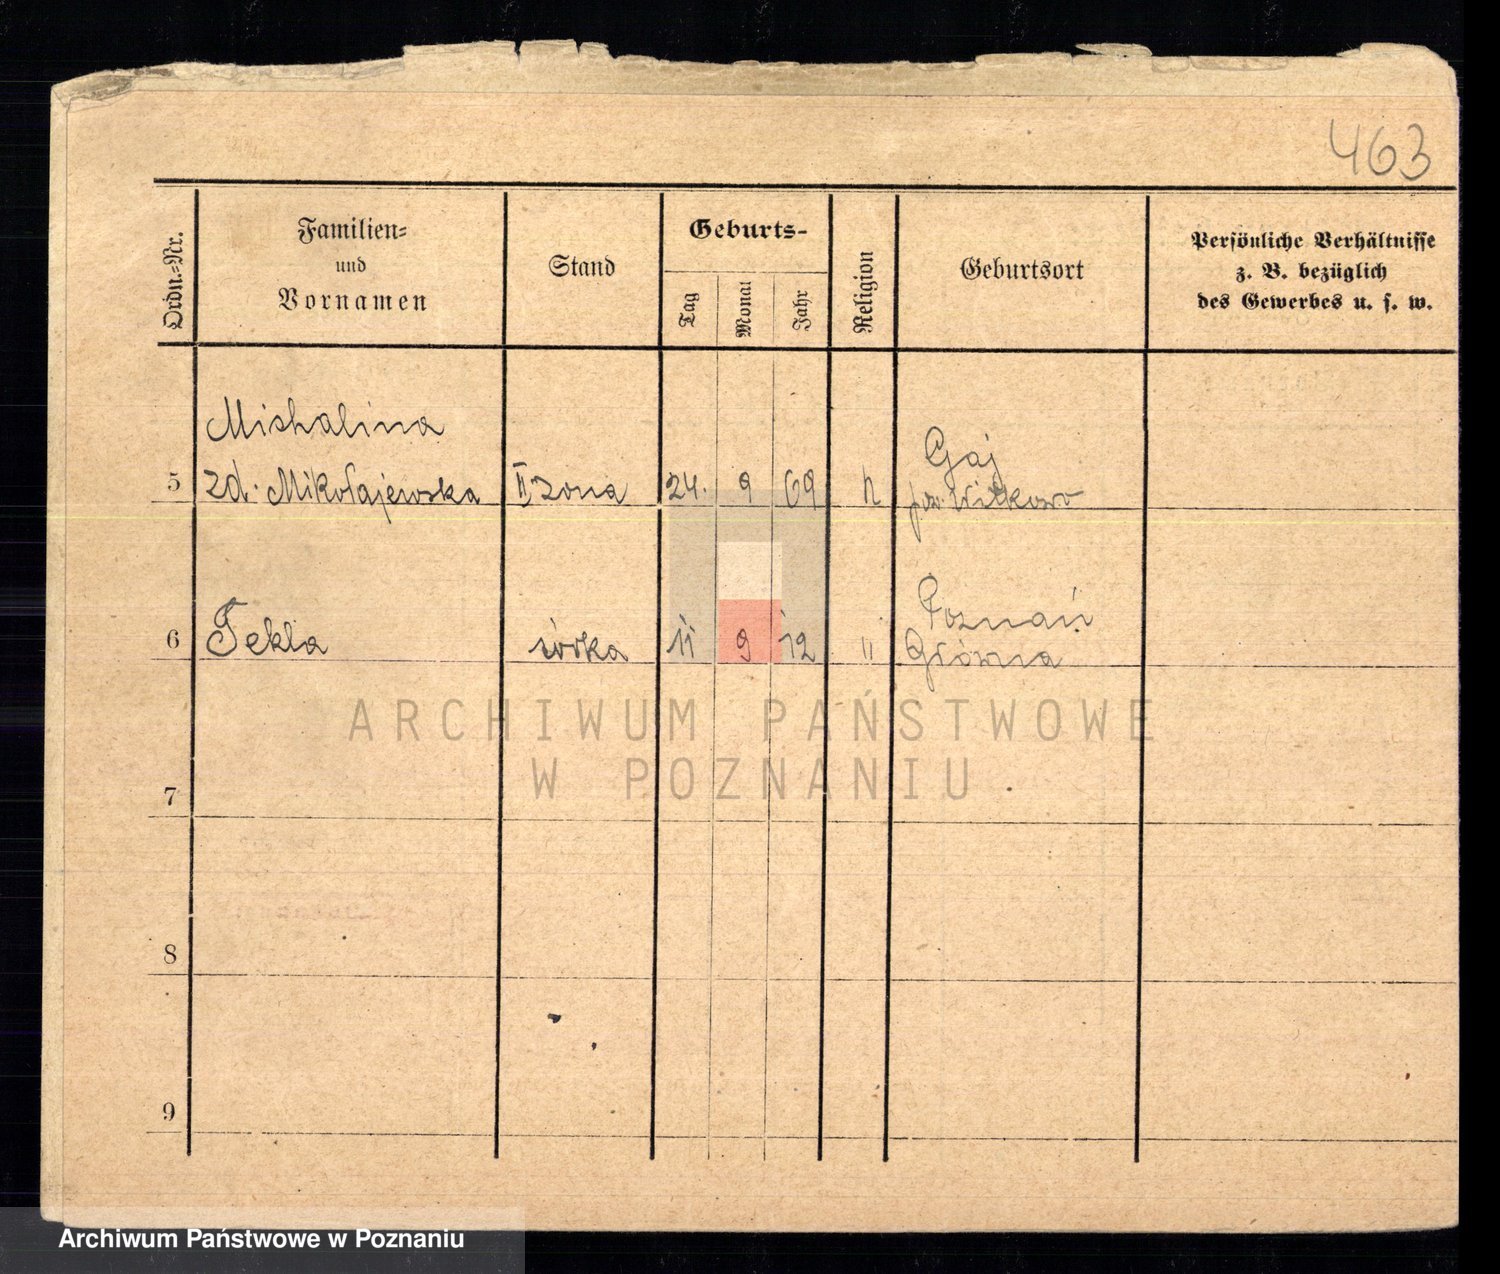 463
Ordn.=Nr.
Familien=
und
Vornamen
Stand
Geburts-
Tag
Monat
Jahr
Religion
Geburtsort
Persönliche Verhältnisse
z. B. bezüglich
des Gewerbes u. s. w.
Michalina
5 zd. Mikołajewska II żona 24. 9 69 k Gaj
pow. Witkowo
6 Tekla córka 11 9 12 " Poznań
Główna
ARCHIWUM PAŃSTWOWE
W POZNANIU
7
8
9
Archiwum Państwowe w Poznaniu